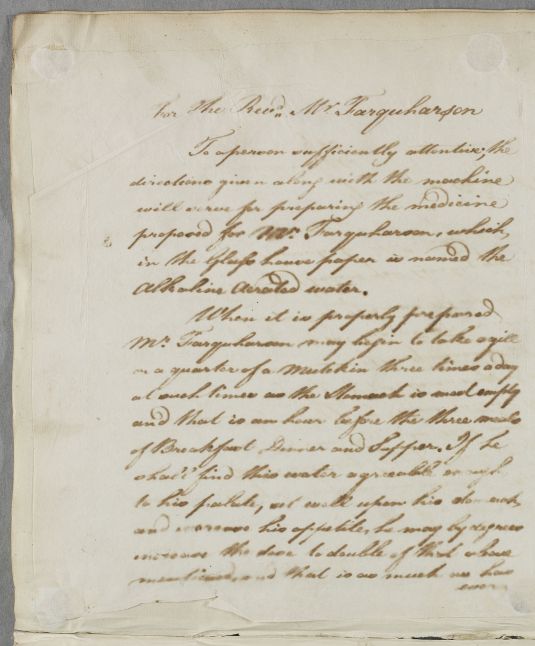 For The Revd. Mr Farquharson
To a person sufficiently attentive, the
directions given along with the machine
will serve for preparing the medicine
proposed for Mr. Farquharson, which,
in the Glass house paper is named the
Alkaline Aerated water.
When it is properly prepared
Mr. Farquharson may begin to take a gill
or a quarter of a Mutchkin three times a day
at such times as the Stomach is most empty
and that is an hour before the three meals
of Breakfast Dinner and Supper. If he
shall find this water agreeable enough
to his palate, set well upon his stomach
and increase his appetite, he may by degrees
increase the dose to double of that above
mentioned, and that is as much as has
ever